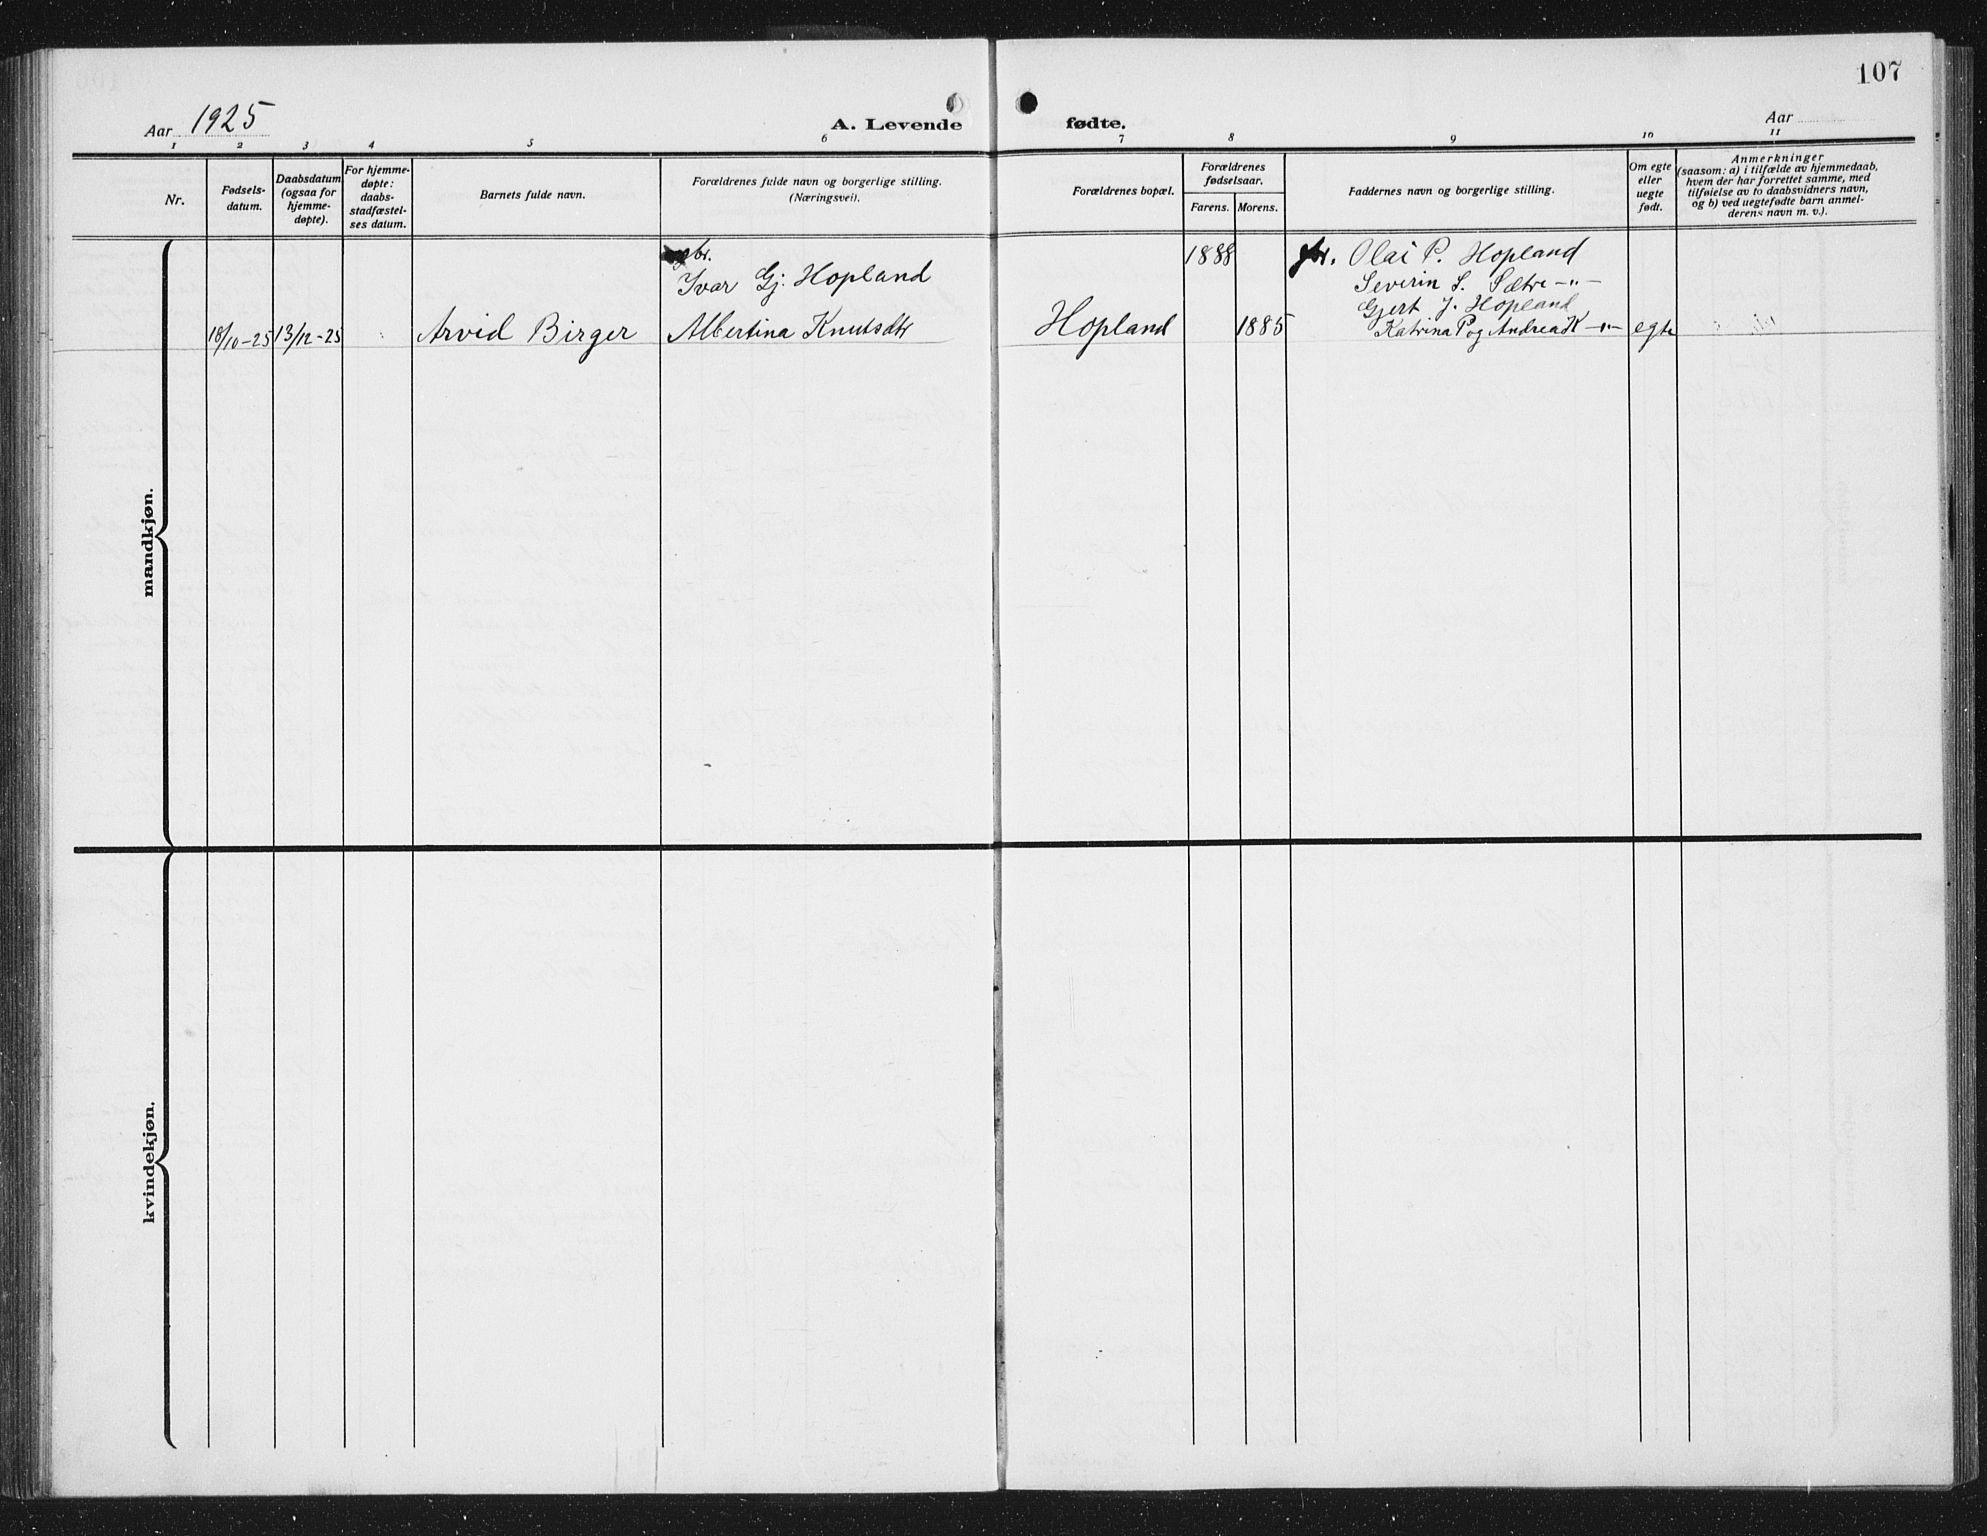 107
Aar 1925
A. Levende fødte.
Aar
1 2 3 4 5 6 7 8 9 10 11
Nr.
Fødsels-
datum.
Daabsdatum
(ogsaa for
hjemme-
døpte).
For hjemme-
døpte:
daabs-
stadfæstel-
ses datum.
Barnets fulde navn.
Forældrenes fulde navn og borgerlige stilling.
(Næringsvei).
Forældrenes bopæl.
Forældrenes
fødselsaar.
Farens. Morens.
Faddernes navn og borgerlige stilling.
Om egte
eller
uegte
født.
Anmerkninger
(saasom: a) i tilfælde av hjemmedaab,
hvem der har forrettet samme, med
tilføielse av to daabsvidners navn,
og b) ved uegtefødte barn anmel-
derens navn m. v.).
mandkjøn.
gbr.
Ivar Gj. Hopland
1888
gbr. Olai P. Hopland
Severin S. Sætre -"-
Gjert J. Hopland
18/10-25 13/12-25 Arvid Birger Albertina Knutsdtr Hopland 1885 Katrina P og Andrea K -"- egte
kvindekjøn.